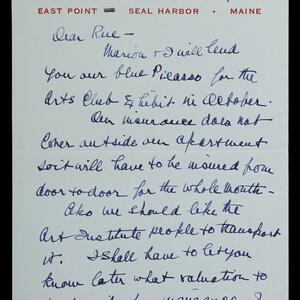 EAST POINT SEAL HARBOR • MAINE
Dear Rue —
Marion & I will lend
you our blue Picasso for the
Arts Club Exhibit in October.
Our insurance does not
cover outside our apartment
so it will have to be insured from
door to door for the whole month —
Also we should like the
Art Institute people to transport
it. I shall have to let you
know later what valuation to